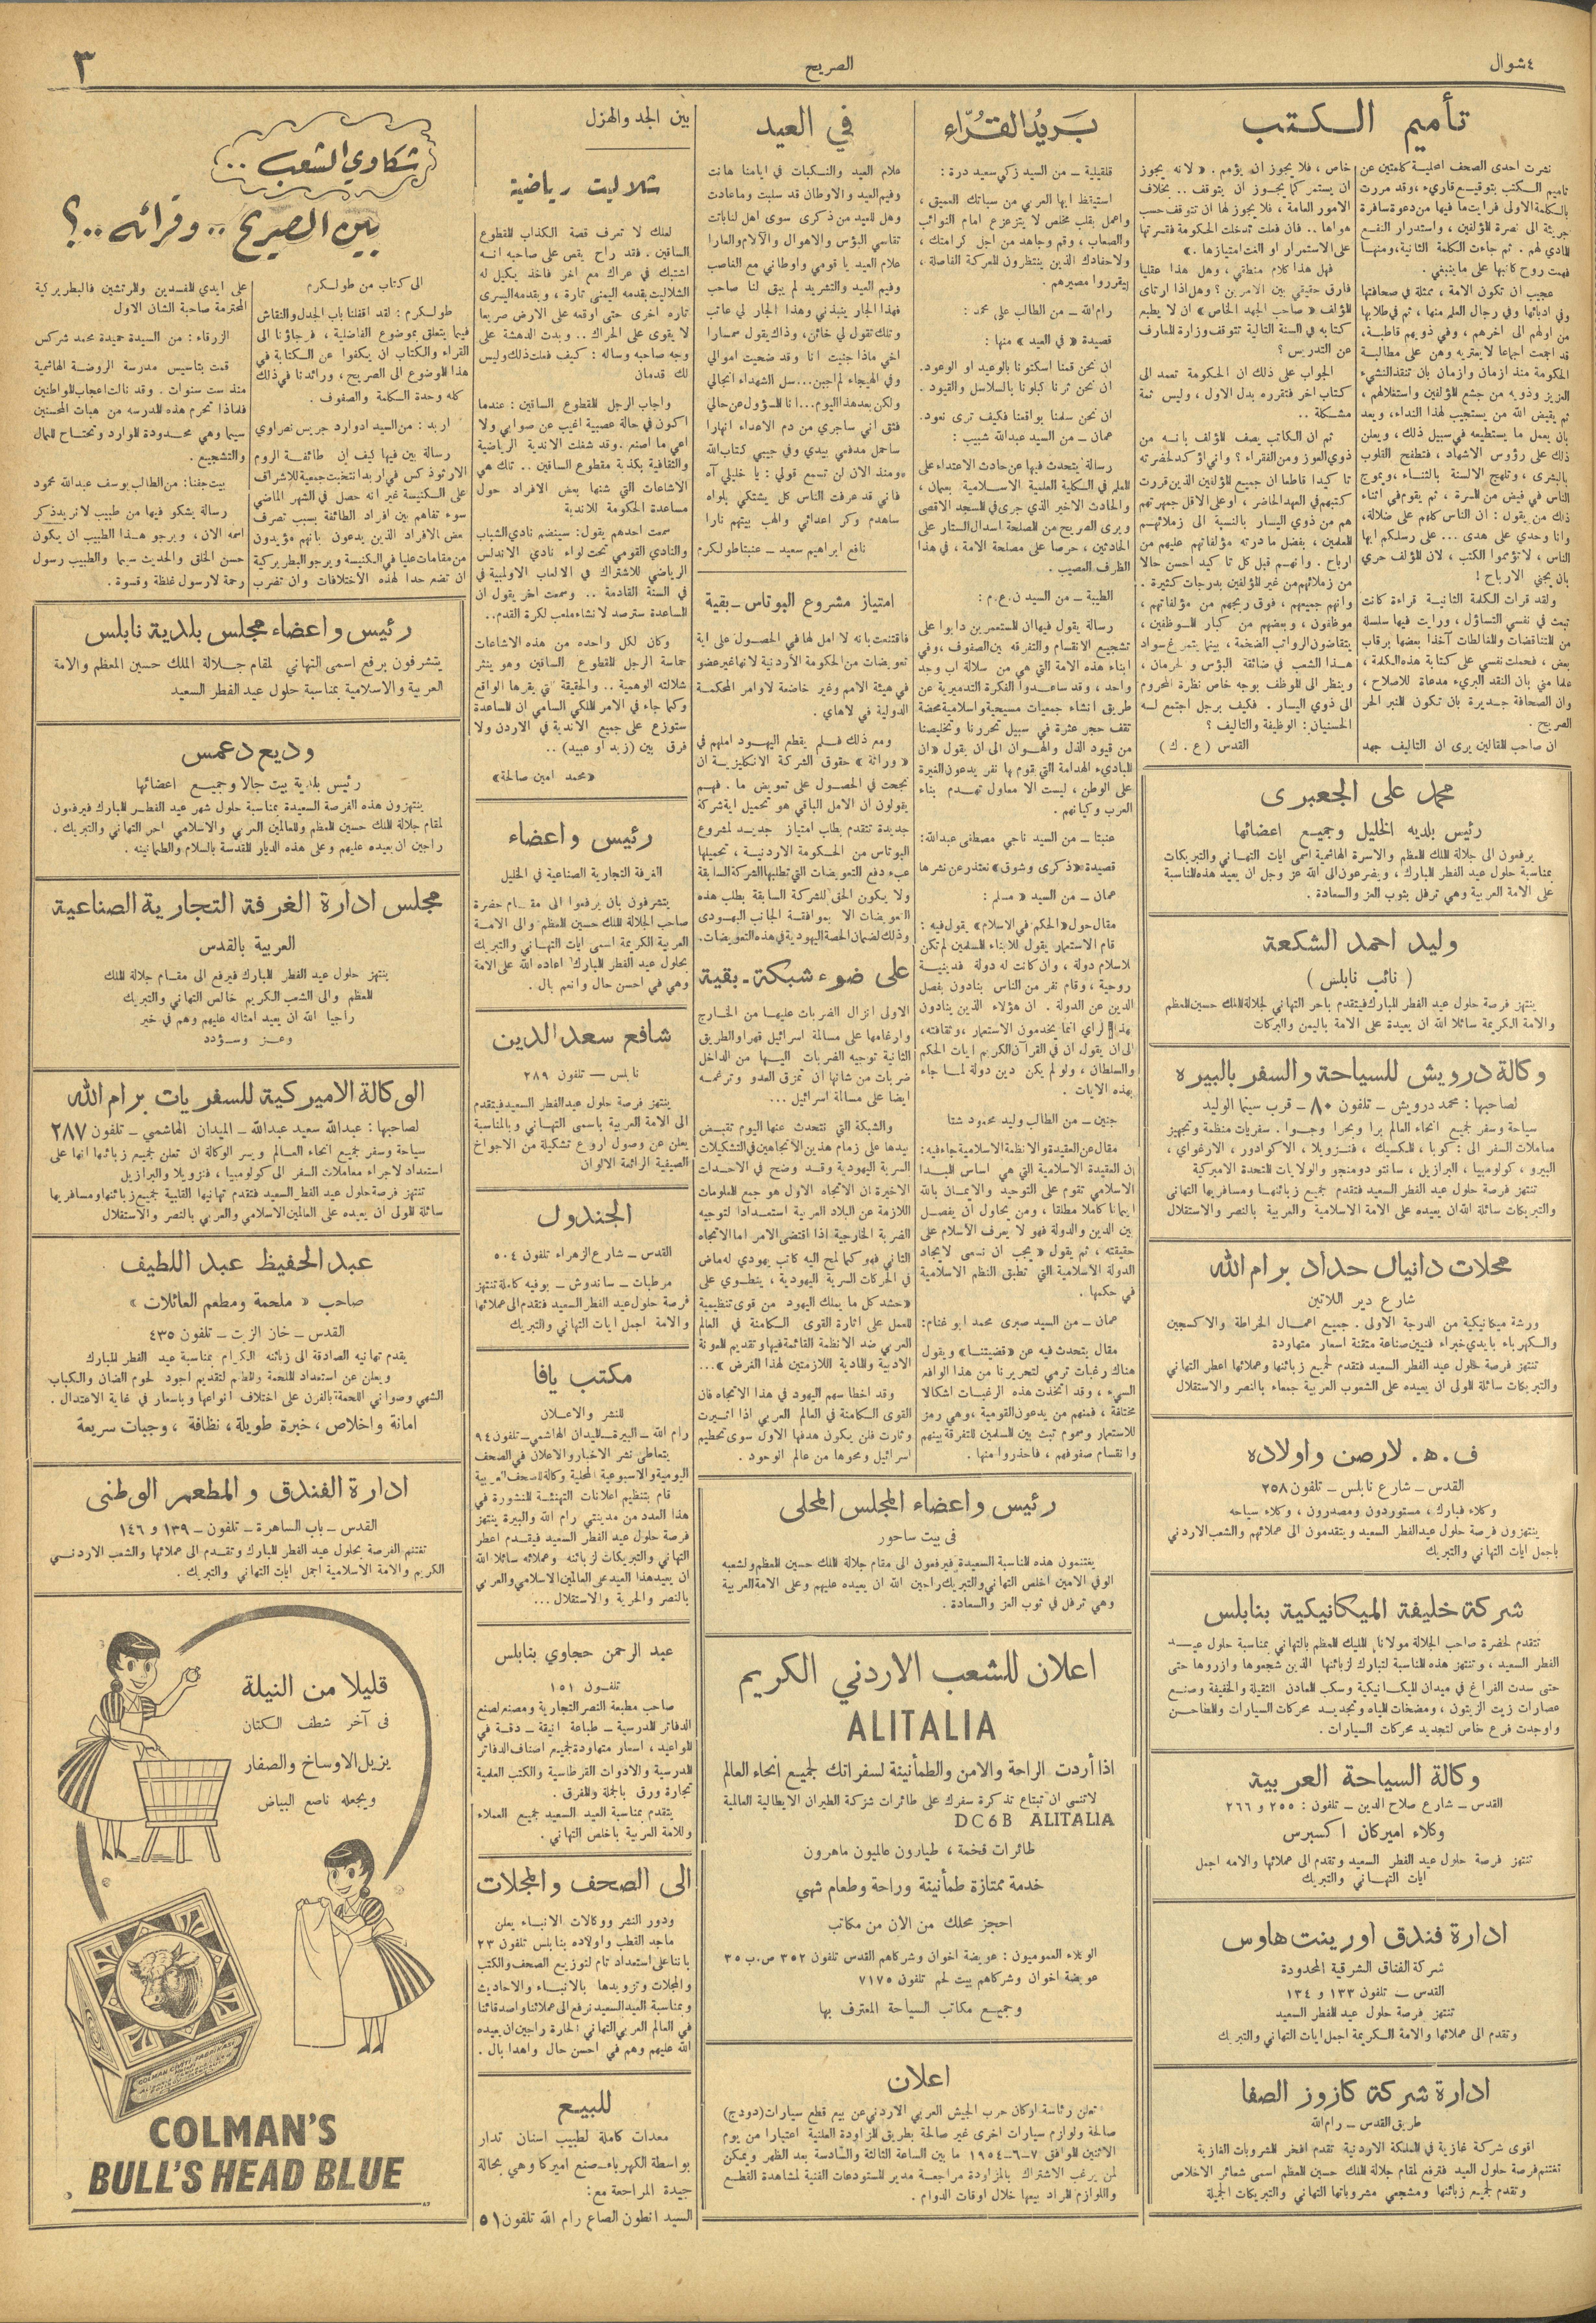 ٤ شوال
الصريح
٣
تأميم الكتب
نشرت احدى الصحف المحلية كلمتين عن
تاميم الكتب بتوقيع قاريء ، وقد مررت
بالكلمة الاولى فرايت ما فيها من دعوة سافرة
جريئة الى نصرة المؤلفين ، واستدرار النفع
المادي لهم . ثم جاءت الكلمة الثانية ، ومنها
فهمت روح كاتبها على ما ينبغي .
عجيب ان تكون الامة ، ممثلة في صحافتها
وفي ادبائها وفي رجال العلم منها ، ثم في طلابها
من اولهم الى اخرهم ، وفي ذويهم قاطبة ،
قد اجمعت اجماعا لا يعتريه وهن على مطالبة
الحكومة منذ ازمان وازمان بان تنقذ النشيء
العزيز وذويه من جشع المؤلفين واستغلالهم ،
ثم يقيض الله من يستجيب لهذا النداء ، ويعد
بان يعمل ما يستطيعه في سبيل ذلك ، ويعلن
ذلك على رؤوس الاشهاد ، فتطفح القلوب
بالبشرى ، وتلهج الالسنة بالثناء ، ويموج
الناس في فيض من المسرة ، ثم يقوم في اثناء
ذلك من يقول : ان الناس كلهم على ضلالة ،
وانا وحدي على هدى ... على رسلكم ايها
الناس ، لا تؤمموا الكتب ، لان المؤلف حري
بان يجني الارباح !
ولقد قرات الكلمة الثانية قراءة كانت
تبعث في نفسي التساؤل ، ورايت فيها سلسلة
من المتناقضات والمغالطات آخذا بعضها برقاب
بعض ، فحملت نفسي على كتابة هذه الكلمة ،
علما مني بان النقد البريء مدعاة للاصلاح ،
وان الصحافة جديرة بان تكون المنبر الحر
الصريح .
ان صاحب المقالين يرى ان التاليف جهد
خاص ، فلا يجوز ان يؤمم . « لانه يجوز
ان يستمر كما يجوز ان يتوقف .. بخلاف
الامور العامة ، فلا يجوز لها ان تتوقف حسب
هواها .. فان فعلت تدخلت الحكومة فقسرتها
على الاستمرار او الغت امتيازها . »
فهل هذا كلام منطقي ، وهل هذا عقليا
فارق حقيقي بين الامرين ؟ وهل اذا ارتاى
المؤلف « صاحب الجهد الخاص » ان لا يطبع
كتابه في السنة التالية تتوقف وزارة المعارف
عن التدريس ؟
الجواب على ذلك ان الحكومة تعمد الى
كتاب اخر فتقرره بدل الاول ، وليس ثمة
مشكلة ..
ثم ان الكاتب يصف المؤلف بانه من
ذوي العوز ومن الفقراء ؟ واني اؤكد لحضرته
تاكيدا قاطعا ان جميع المؤلفين الذين قررت
كتبهم في العهد الحاضر ، او على الاقل جمهرتهم
هم من ذوي اليسار بالنسبة الى زملائهم
المعلمين ، بفضل ما درته مؤلفاتهم عليهم من
ارباح . وانهم قبل كل تاكيد احسن حالا
من زملائهم من غير المؤلفين بدرجات كثيرة .
وانهم جميعهم ، فوق ربحهم من مؤلفاتهم ،
موظفون ، وبعضهم من كبار الموظفين ،
يتقاضون الرواتب الضخمة ، بينما يتمرغ سواد
هذا الشعب في ضائقة البؤس والحرمان ،
وينظر الى الموظف بوجه خاص نظرة المحروم
الى ذوي اليسار . فكيف برجل اجتمع له
الحسنيان : الوظيفة والتاليف ؟
القدس ( ع . ك )
محمد علي الجعبري
رئيس بلدية الخليل وجميع اعضائها
يرفعون الى جلالة الملك المعظم والاسرة الهاشمية اسمى ايات التهاني والتبريكات
بمناسبة حلول عيد الفطر المبارك ، ويضرعون الى الله عز وجل ان يعيد هذه المناسبة
على الامة العربية وهي ترفل بثوب العز والسعادة .
وليد احمد الشكعة
( نائب نابلس )
ينتهز فرصة حلول عيد الفطر المبارك فيتقدم باحر التهاني لجلالة الملك حسين المعظم
والامة الكريمة سائلا الله ان يعيدة على الامة باليمن والبركات
وكالة درويش للسياحة والسفر بالبيره
لصاحبها : محمد درويش – تلفون ٨٠ – قرب سينما الوليد
سياحة وسفر لجميع انحاء العالم برا وبحرا وجوا . سفريات منظمة وتجهيز
معاملات السفر الى : كوبا ، المكسيك ، فنزويلا ، الاكوادور ، الارغواي ،
البيرو ، كولومبيا ، البرازيل ، سانتو دومنجو والولايات المتحدة الاميركية
تنتهز فرصة حلول عيد الفطر السعيد فتتقدم لجميع زبائنها ومسافريها التهانى
والتبريكات سائلة الله ان يعيده على الامة الاسلامية والعربية بالنصر والاستقلال
محلات دانيال حداد برام الله
شارع دير اللاتين
ورشة ميكانيكية من الدرجة الاولى . جميع اعمال الخراطة والاكسجين
والكهرباء بايدي خبراء فنيين صناعة متقنة اسعار متهاودة
تنتهز فرصة حلول عيد الفطر السعيد فتتقدم لجميع زبائنها وعملائها اعطر التهاني
والتبريكات سائلة المولى ان يعيده على الشعوب العربية جمعاء بالنصر والاستقلال
ف . ه . لارصن واولاده
القدس – شارع نابلس – تلفون ٢٥٨
وكلاء فبارك ، مستوردون ومصدرون ، وكلاء سياحه
ينتهزون فرصة حلول عيد الفطر السعيد ويتقدمون الى عملائهم والشعب الاردني
باجمل ايات التهاني والتبريك
شركة خليفة الميكانيكية بنابلس
تتقدم لحضرة صاحب الجلالة مولانا المليك المعظم بالتهاني بمناسبة حلول عيد
الفطر السعيد ، وتنتهز هذه المناسبة لتبارك لزبائنها الذين شجعوها وازروها حتى
حتى سدت الفراغ في ميدان الميكانيكية وسكب المعادن الثقيلة والخفيفة وصنع
عصارات زيت الزيتون ، ومضخات المياه وتجديد محركات السيارات والمطاحن
واوجدت فرع خاص لتجديد محركات السيارات .
وكالة السياحة العربية
القدس – شارع صلاح الدين – تلفون : ٢٥٥ و ٢٦٦
وكلاء اميركان اكسبرس
تنتهز فرصة حلول عيد الفطر السعيد وتقدم الى عملائها والامه اجمل
ايات التهاني والتبريك
ادارة فندق اورينت هاوس
شركة الفناق الشرقية المحدودة
القدس – تلفون ١٣٣ و ١٣٤
تنتهز فرصة حلول عيد الفطر السعيد
وتقدم الى عملائها والامة الكريمة اجمل ايات التهاني والتبريك
ادارة شركة كازوز الصفا
طريق القدس – رام الله
اقوى شركة غازية في المملكة الاردنية تقدم افخر المشروبات الغازية
تغتنم فرصة حلول العيد فترفع لمقام جلالة الملك حسين المعظم اسمى شعائر الاخلاص
وتقدم لجميع زبائنها ومشجعي مشروباتها التهاني والتبريكات الجميلة
بَريدُ القُرّاء
قلقيلية – من السيد زكي سعيد درة :
استيقظ ايها العربي من سباتك العميق ،
واعمل بقلب مخلص لا يتزعزع امام النوائب
والصعاب ، وقم وجاهد من اجل كرامتك ،
ولاحفادك الذين ينتظرون المعركة الفاصلة ،
ليقرروا مصيرهم .
رام الله – من الطالب علي محمد :
قصيدة « في العيد » منها :
ان نحن قمنا اسكتونا بالوعيد او الوعود .
ان نحن ثرنا كبلونا بالسلاسل والقيود .
ان نحن سلمنا بواقعنا فكيف ترى نعود .
عمان – من السيد عبدالله شبيب :
رسالة يتحدث فيها عن حادث الاعتداء على
المعلم في الكلية العلمية الاسلامية بعمان ،
والحادث الاخير الذي جرى في المسجد الاقصى
ويرى الصريح من المصلحة اسدال الستار على
الحادثين ، حرصا على مصلحة الامة ، في هذا
الظرف العصيب .
الطيبة – من السيد ن.ع.م :
رسالة يقول فيها ان المستعمرين دابوا على
تشجيع الانقسام والتفرقه بين الصفوف ، وفي
ابناء هذه الامة التي هي من سلالة اب وجد
واحد ، وقد ساعدوا الفكرة التدميرية عن
طريق انشاء جمعيات مسيحية واسلامية محضة
تقف حجر عثرة في سبيل تحررنا وتخليصنا
من قيود الذل والهوان الى ان يقول « ان
المباديء الهدامة التي يقوم بها نفر يدعون الغيرة
على الوطن ، ليست الا معاول تهدم بناء
العرب وكيانهم .
عنبتا – من السيد ناجي مصطفى عبدالله :
قصيدة « ذكرى وشوق » نعتذر عن نشرها
عمان – من السيد « مسلم » :
مقال حول « الحكم في الاسلام » يقول فيه :
قام الاستعمار يقول للابناء المسلمين لم تكن
لاسلام دولة ، وان كانت له دولة فدينية
روحية ، وقام نفر من الناس ينادون بفصل
الدين عن الدولة . ان هؤلاء الذين ينادون
بهذا الراي انما يخدمون الاستعمار ، وثقافته ،
الى ان يقول ان في القرآن الكريم ايات الحكم
والسلطان ، ولو لم يكن دين دولة لما جاء
بهذه الايات .
جنين – من الطالب وليد محمود شتا
مقال عن العقيدة والانظمة الاسلامية جاء فيه :
ان العقيدة الاسلامية التي هي اساس المبدا
الاسلامي تقوم على التوحيد والايمان بالله
ايمانا كاملا مطلقا ، ومن يحاول ان يفصل
بين الدين والدولة فهو لا يعرف الاسلام على
حقيقته ، ثم يقول « يجب ان نسعى لايجاد
الدولة الاسلامية التي تطبق النظم الاسلامية
في حكمها .
عمان – من السيد صبري محمد ابو غنام :
مقال يتحدث فيه عن « قضيتنا » ويقول
هناك رغبات ترمي لتحريرنا من هذا الواقع
السيء ، وقد اتخذت هذه الرغبات اشكالا
مختلفة ، فمنهم من يدعون القومية ، وهي رمز
للاستعمار وسموم تبث بين المسلمين للتفرقة بينهم
وانقسام صفوفهم ، فاحذروا منها .
في العيد
علام العيد والنكبات في ايامنا هانت
وفيم العيد والاوطان قد سلبت وما عادت
وهل للعيد من ذكرى سوى اهل لنا باتت
تقاسي البؤس والاهوال والآلام والعارا
علام العيد يا قومي واوطاني مع الغاصب
وفيم العيد والتشريد لم يبق لنا صاحب
فهذا الجار ينبذني وهذا الجار لي عاتب
وتلك تقول لي خائن ، وذاك يقول سمسارا
اخي ماذا جنيت انا وقد ضحيت اموالي
وفي الهيجاء لم اجبن ... سل الشهداء انجالي
ولكن بعد هذا اليوم ... انا المسؤول عن حالي
فثق اني ساجري من دم الاعداء انهارا
ساحمل مدفعي بيدي وفي جيبي كتاب الله
ومنذ الان لن تسمع قولي : يا خليلي آه
فاني قد عرفت الناس كل يشتكي بلواه
ساهدم وكر اعدائي والهب بيتهم نارا
نافع ابراهيم سعيد – عنبتا طولكرم
امتياز مشروع البوتاس – بقية
فاقتنعت بانه لا امل لها في الحصول على اية
تعويضات من الحكومة الاردنية لانها غير عضو
في هيئة الامم وغير خاضعة لاوامر المحكمة
الدولية في لاهاي .
ومع ذلك فلم يقطع اليهود املهم في
« وراثة » حقوق الشركة الانكليزية ان
نجحت في الحصول على تعويض ما . فهم
يقولون ان الامل الباقي هو تحميل اية شركة
جديدة تتقدم بطلب امتياز جديد لمشروع
البوتاس من الحكومة الاردنية ، تحميلها
عبء دفع التعويضات التي تطلبها الشركة السابقة
ولا يكون الحق للشركة السابقة بطلب هذه
التعويضات الا بموافقة الجانب اليهودي
وذلك لضمان الحصة اليهودية في هذه التعويضات .
على ضوء شبكة – بقية
الاولى انزال الضربات عليها من الخارج
وارغامها على مسالمة اسرائيل قهرا والطريق
الثانية توجيه الضربات اليها من الداخل
ضربات من شانها ان تمزق العدو وترغمه
ايضا على مسالمة اسرائيل ...
والشبكة التي نتحدث عنها اليوم تقبض
بيدها على زمام هذين الاتجاهين في التشكيلات
السرية اليهودية وقد وضح في الاحداث
الاخيرة ان الاتجاه الاول هو جمع المعلومات
اللازمة عن البلاد العربية استعدادا لتوجيه
الضربة الخارجية اذا اقتضى الامر اما الاتجاه
الثاني فهو كما لمح اليه كاتب يهودي له ماض
في الحركات السرية اليهودية ، ينطوي على
« حشد كل ما يملك اليهود من قوى تنظيمية
للعمل على اثارة القوى الكامنة في العالم
العربي ضد الانظمة القائمة فيها وتقديم المعونة
الادبية والمادية اللازمتين لهذا الغرض » ...
وقد اخطا سهم اليهود في هذا الاتجاه فان
القوى الكامنة في العالم العربي اذا اثيرت
وثارت فلن يكون هدفها الاول سوى تحطيم
اسرائيل ومحوها من عالم الوجود .
رئيس واعضاء المجلس المحلي
في بيت ساحور
يغتنمون هذه المناسبة السعيدة فيرفعون الى مقام جلالة الملك حسين المعظم ولشعبه
الوفي الامين اخلص التهاني والتبريك راجين الله ان يعيده عليهم وعلى الامة العربية
وهي ترفل في ثوب العز والسعادة .
اعلان للشعب الاردني الكريم
ALITALIA
اذا أردت الراحة والامن والطمأنينة لسفراتك لجميع انحاء العالم
لا تنسى ان تبتاع تذكرة سفرك على طائرات شركة الطيران الايطالية العالمية
DC6B ALITALIA
طائرات فخمة ، طيارون عالميون ماهرون
خدمة ممتازة طمأنينة وراحة وطعام شهي
احجز محلك من الان من مكاتب
الوكلاء العموميون : عويضة اخوان وشركاهم القدس تلفون ٣٥٢ ص.ب ٣٥
عويضة اخوان وشركاهم بيت لحم تلفون ٧١٧٥
وجميع مكاتب السياحة المعترف بها
اعلان
تعلن رئاسة اركان حرب الجيش العربي الاردني عن بيع قطع سيارات (دودج)
صالحة ولوازم سيارات اخرى غير صالحة بطريق المزاودة العلنية اعتبارا من يوم
الاثنين الموافق ٧–٦–١٩٥٤ ما بين الساعة الثالثة والسادسة بعد الظهر ويمكن
لمن يرغب الاشتراك بالمزاودة مراجعة مدير المستودعات الفنية لمشاهدة القطع
واللوازم المراد بيعها خلال اوقات الدوام .
بين الجد والهزل
شلاليت رياضية
لعلك لا تعرف قصة الكذاب المقطوع
الساقين . فقد راح يقص على صاحبه انه
اشتبك في عراك مع اخر فاخذ يكيل له
الشلاليت بقدمه اليمنى تارة ، وبقدمه اليسرى
تارة اخرى حتى اوقعه على الارض صريعا
لا يقوى على الحراك .. وبدت الدهشة على
وجه صاحبه وساله : كيف فعلت ذلك وليس
لك قدمان
واجاب الرجل المقطوع الساقين : عندما
اكون في حالة عصبية اغيب عن صوابي ولا
اعي ما اصنع . وقد شغلت الاندية الرياضية
والثقافية بكذبة مقطوع الساقين .. تلك هي
الاشاعات التي شنها بعض الافراد حول
مساعدة الحكومة للاندية
سمعت احدهم يقول : سينضم نادي الشباب
والنادي القومي تحت لواء نادي الاندلس
الرياضي للاشتراك في الالعاب الاولمبية في
في السنة القادمة .. وسمعت اخر يقول ان
المساعدة سترصد لانشاء ملعب لكرة القدم ..
وكان لكل واحده من هذه الاشاعات
حماسة الرجل المقطوع الساقين وهو ينثر
شلالته الوهمية .. والحقيقة التي يقرها الواقع
وكما جاء في الامر الملكي السامي ان المساعدة
ستوزع على جميع الاندية في الاردن ولا
فرق بين (زيد او عبيد) ..
«محمد امين صالحة»
رئيس واعضاء
الغرفة التجارية الصناعية في الخليل
يتشرفون بان يرفعوا الى مقام حضرة
صاحب الجلالة الملك حسين المعظم والى الامة
العربية الكريمة اسمى ايات التهاني والتبريك
بحلول عيد الفطر المبارك اعاده الله على الامة
وهي في احسن حال وانعم بال .
شافع سعد الدين
نابلس – تلفون ٢٨٩
ينتهز فرصة حلول عيد الفطر السعيد فيتقدم
الى الامة العربية باسمى التهاني وبالمناسبة
يعلن عن وصول اروع تشكيلة من الاجواخ
الصيفية الرائعة الالوان
الجندول
القدس – شارع الزهراء تلفون ٥٠٤
مرطبات – ساندوش – بوفيه كاملة تنتهز
فرصة حلول عيد الفطر السعيد فتتقدم الى عملائها
والامة اجمل ايات التهاني والتبريك
مكتب يافا
للنشر والاعلان
رام الله – البيرة – الميدان الهاشمي – تلفون ٩٤
يتعاطى نشر الاخبار والاعلان في الصحف
اليومية والاسبوعية المحلية وكالة لصحف العربية
قام بتنظيم اعلانات التهنئة المنشورة في
هذا العدد من مدينتي رام الله والبيرة ينتهز
فرصة حلول عيد الفطر السعيد فيقدم اعطر
التهاني والتبريكات لزبائنه وعملائه سائلا الله
ان يعيد هذا العيد على العالمين الاسلامي والعربي
بالنصر والحرية والاستقلال ...
عبد الرحمن حجاوي بنابلس
تلفون ١٥١
صاحب مطبعة النصر التجارية ومصنع لصنع
الدفاتر المدرسية – طباعة انيقة – دقة في
المواعيد ، اسعار متهاودة لجميع اصناف الدفاتر
المدرسية والادوات القرطاسية والكتب العلمية
تجارة ورق بالجملة والمفرق .
يتقدم بمناسبة العيد السعيد لجميع العملاء
وللامة العربية باخلص التهاني .
الى الصحف والمجلات
ودور النشر ووكالات الانباء يعلن
ماجد القطب واولاده بنابلس تلفون ٢٣
باننا على استعداد تام لتوزيع الصحف والكتب
والمجلات وتزويدها بالانباء والاحاديث
وبمناسبة العيد السعيد نرفع الى عملائنا واصدقائنا
في العالم العربي التهاني الحارة راجين ان يعيده
الله عليهم وهم في احسن حال واهدا بال .
للبيع
معدات كاملة لطبيب اسنان تدار
بواسطة الكهرباء – صنع اميركا وهي بحالة
جيدة المراجعة مع :
السيد انطون الصاع رام الله تلفون ٥١
شكاوي الشعب ..
بين الصريح .. وقرائه .. ؟
الى كتاب من طولكرم
طولكرم : لقد اقفلنا باب الجدل والنقاش
فيما يتعلق بموضوع الفاضلية ، فرجاؤنا الى
القراء والكتاب ان يكفوا عن الكتابة في
هذا الموضوع الى الصريح ، ورائدنا في ذلك
كله وحدة الكلمة والصفوف .
اربد : من السيد ادوارد جريس نصراوي
رسالة بين فيها كيف ان طائفة الروم
الارثوذكس في اربد انتخبت جمعية للاشراف
على الكنيسة غير انه حصل في الشهر الماضي
سوء تفاهم بين افراد الطائفة بسبب تصرف
بعض الافراد الذين يدعون بانهم مؤيدون
من مقامات عليا في الكنيسة ويرجو البطريركية
ان تضع حدا لهذه الاختلافات وان تضرب
على ايدي المفسدين والمرتشين فالبطريركية
المحترمة صاحبة الشان الاول
الزرقاء : من السيدة حميدة محمد شركس
قمت بتاسيس مدرسة الروضة الهاشمية
منذ ست سنوات . وقد نالت اعجاب المواطنين
فلماذا تحرم هذه المدرسه من هبات المحسنين
سيما وهي محدودة الموارد وتحتاج للمال
والتشجيع .
بيت جفنا : من الطالب يوسف عبدالله محمود
رسالة يشكو فيها من طبيب لا نريد ذكر
اسمه الان ، ويرجو هذا الطبيب ان يكون
حسن الخلق والحديث سيما والطبيب رسول
رحمة لا رسول غلظة وقسوة .
رئيس واعضاء مجلس بلدية نابلس
يتشرفون برفع اسمى التهاني لمقام جلالة الملك حسين المعظم والامة
العربية والاسلامية بمناسبة حلول عيد الفطر السعيد
وديع دعمس
رئيس بلدية بيت جالا وجميع اعضائها
ينتهزون هذه الفرصة السعيدة بمناسبة حلول شهر عيد الفطر المبارك فيرفعون
لمقام جلالة الملك حسين المعظم وللعالمين العربي والاسلامي احر التهاني والتبريك .
راجين ان يعيده عليهم وعلى هذه الديار المقدسة بالسلام والطمانينه .
مجلس ادارة الغرفة التجارية الصناعية
العربية بالقدس
ينتهز حلول عيد الفطر المبارك فيرفع الى مقام جلالة الملك
المعظم والى الشعب الكريم خالص التهاني والتبريك
راجيا الله ان يعيد امثاله عليهم وهم في خير
وعز وسؤدد
الوكالة الاميركية للسفريات برام الله
لصاحبها : عبدالله سعيد عبدالله – الميدان الهاشمي – تلفون ٢٨٧
سياحة وسفر لجميع انحاء العالم ويسر الوكالة ان تعلن لجميع زبائنها انها على
استعداد لاجراء معاملات السفر الى كولومبيا ، فنزويلا والبرازيل
تنتهز فرصة حلول عيد الفطر السعيد فتتقدم تهانيها القلبية لجميع زبائنها ومسافريها
سائلة المولى ان يعيده على العالمين الاسلامي والعربي بالنصر والاستقلال
عبد الحفيظ عبد اللطيف
صاحب « ملحمة ومطعم العائلات »
القدس – خان الزيت – تلفون ٤٣٥
يقدم تهانيه الصادقة الى زبائنه الكرام بمناسبة عيد الفطر المبارك
ويعلن عن استعداد الملحمة والمطعم لتقديم اجود لحوم الضان والكباب
الشهي وصواني اللحمة بالفرن على اختلاف انواعها وباسعار في غاية الاعتدال .
امانة واخلاص ، خبرة طويلة ، نظافة ، وجبات سريعة
ادارة الفندق والمطعم الوطني
القدس – باب الساهرة – تلفون – ١٣٩ و ١٤٦
تغتنم الفرصة بحلول عيد الفطر المبارك وتقدم الى عملائها والشعب الاردني
الكريم والامة الاسلامية اجمل ايات التهاني والتبريك .
قليلا من النيلة
في آخر شطف الكتان
يزيل الاوساخ والصفار
ويجعله ناصع البياض
COLMAN'S
BULL'S HEAD BLUE